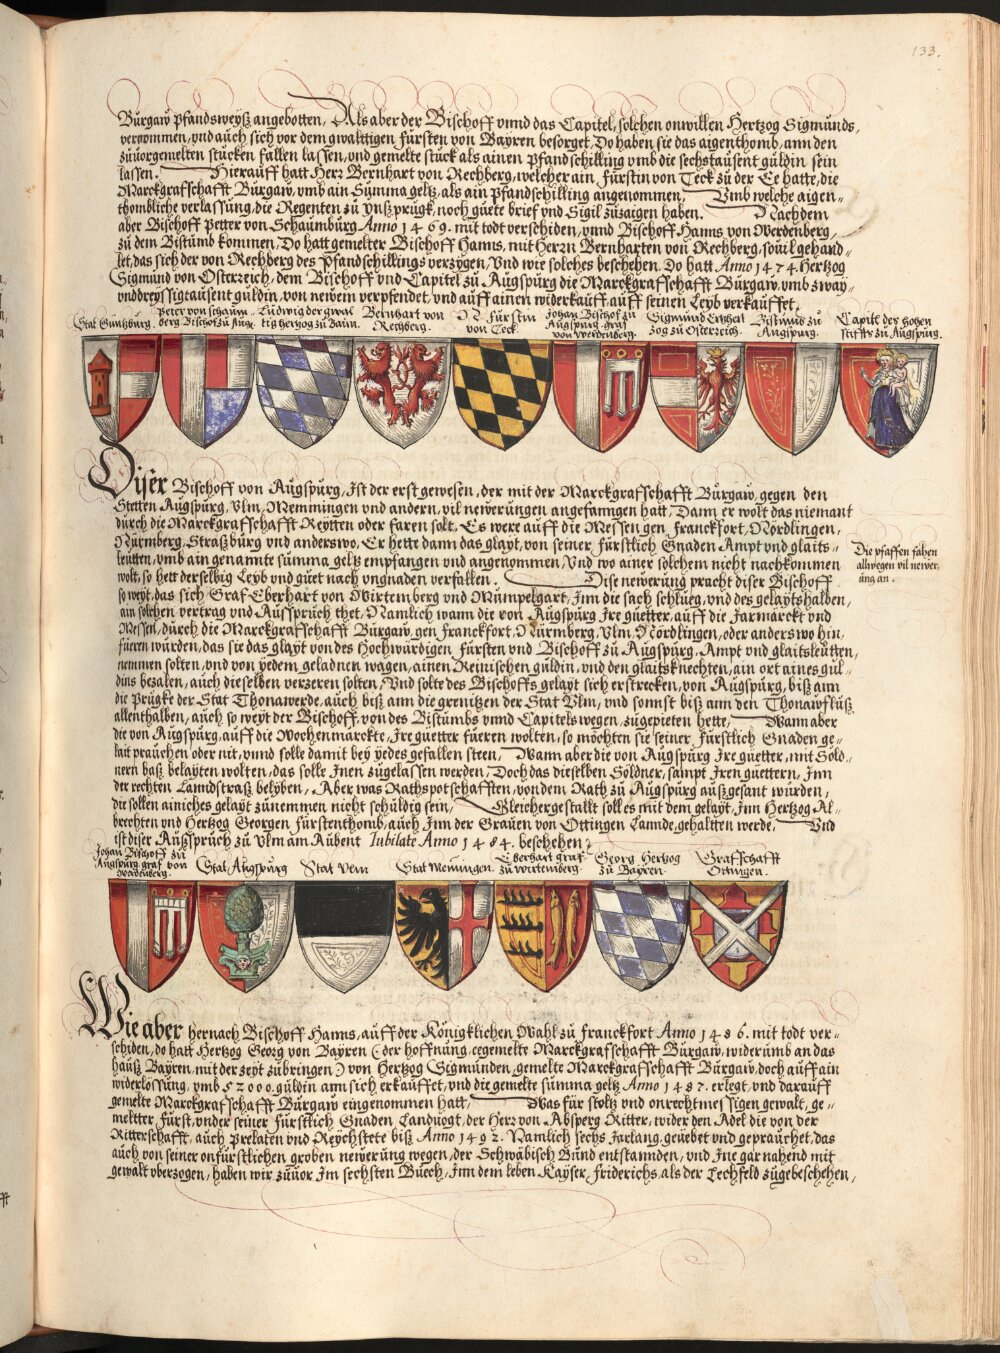 133.
Burgaw pfandsweÿß angebotten, Als aber der Bischoff vnnd das Capitel, solchen onwillen Hertzog Sigmunds,
vernommen, vnd auch sich vor dem gwalttigen fürsten von Bayren besorget, Do haben sie das aigenthomb, ann den
zuuorgemelten stucken fallen lassen, vnd gemelte stuck als ainen Pfandschilling vmb die sechstausent guldin sein
lassen. Hierauff hatt Herr Bernhart von Rechberg, welcher ain fürstin von Teck zu der Ee hatte, die
Marckgrafschafft Burgaw, vmb ain Summa geltz, als ain Pfandschilling angenommen, Vmb welche aigen-
thombliche verlassung, die Regenten zu Ynßprugk, noch guete brief vnd Sigil zuzaigen haben. Nachdem
aber Bischoff Petter von Schaumburg Anno 1469. mit todt verschiden, vnnd Bischoff Hanns von Werdenberg,
zu dem Bistumb kommen, Do hatt gemelter Bischoff Hanns, mit Herrn Bernharten von Rechberg, souil gehand-
let, das sich der von Rechberg des Pfandschillings verzigen, Vnd wie solches beschehen, Do hatt Anno 1474. Hertzog
Sigmund von Osterreich, dem Bischoff vnd Capitel zu Augspurg die Marckgrafschafft Burgaw, vmb zway-
vnddreyssigtausent guldin, von newem verpfendet, vnd auff ainen widerkauff, auff seinen Leyb verkaufft,
Stat Guntzburg.
Peter von schaum-
berg Bischof zu Aug.
Ludwig der gwal-
tig hertzog zu Bairn.
Bernhart von
Rechberg.
N. Fürstin
von Teck
Johan Bischof zu
Augspurg graf
von Werdenberg.
Sigmund Ertzher-
zog zu Osterreich.
Bistumb zu
Augspurg.
Capitl des hohen
stiffts zu Augspurg.
Diser Bischoff von Augspurg, Ist der erst gewesen, der mit der Marckgrafschafft Burgaw, gegen den
Stetten Augspurg, Vlm, Memmingen vnd andern, vil newerungen angefanngen hatt, Dann er wolt das niemant
durch die Marckgrafschafft Reytten oder faren solt, Es were auff die Messen gen franckfort, Nördlingen,
Nürmberg, Straßburg vnd anderswo, Er hette dann das glayt, von seiner fürstlich Gnaden Ampt vnd glaits-
leütten, vmb ain genannte summa geltz empfangen vnd angenommen, Vnd wo ainer solchem nicht nachkommen
wolt, so hett derselbig Leyb vnd guet nach vngnaden verfallen. Dise newerung pracht diser Bischoff
so weyt, das sich Graf Eberhart von Wirtemberg vnd Mümpelgart, Jnn die sach schlueg, vnd des gelaytshalben,
ain solchen vertrag vnd Ausspruch thet, Namlich wann die von Augspurg Jre guetter, auff die Jarmarckt vnd
Messen, durch die Marckgrafschafft Burgaw, gen franckfort, Nürmberg, Vlm, Nördlingen, oder anderswo hin,
fueren wurden, das sie das glayt von des Hochwürdigen fürsten vnd Bischoff zu Augspurg, Ampt vnd glaitsleütten,
nemmen solten, vnd von yedem geladnen wagen, ainen Reinischen guldin, vnd den glaitsknechten, ain ort aines gul-
dins bezalen, auch dieselben verzeren solten, Vnd solte des Bischoffs gelayt sich erstrecken, von Augspurg, biß ann
die Prugke der Stat Thonawerde, auch biß ann die grenitzen der Stat Vlm, vnd sonnst biß ann den Thonawfluß
allenthalben, auch so weyt der Bischoff, von des Bistumbs vnnd Capitels wegen, zugepieten hette, Wann aber
die von Augspurg, auff die Wochenmarckte, Jre guetter fueren wolten, so möchten sie seiner fürstlich Gnaden ge-
lait prauchen oder nit, vnnd solle damit bey yedes gefallen steen, Wann aber die von Augspurg Jre guetter, mit Söld-
nern baß belayten wolten, das solle Jnen zugelassen werden, Doch das dieselben Söldner, sampt Jren guettern, Jnn
der rechten Lanndstraß belyben, Aber was Rathspotschafften, von dem Rath zu Augspurg außgesant wurden,
die sollen ainiches gelayt zunemmen nicht schuldig sein, Gleichergestallt soll es mit dem gelayt, Jnn Hertzog Al-
brechten vnd Hertzog Georgen fürstenthomb, auch Jnn der Grauen von Ottingen Lannde, gehaltten werde, Vnd
ist diser Außspruch zu Vlm am Aubent Iubilate Anno 1484. beschehen.
Die pfaffen fahen
allwegen vil newer-
ung an.
Johan Bischoff zu
Augspurg graf von
Werdenberg.
Stat Augspurg
Stat Vlm
Stat Memingen.
Eberhart graf
zu Wirtemberg.
Georg Hertzog
zu Bayren.
Grafschafft
Ottingen.
Wie aber hernach Bischoff Hanns, auff der Königklichen Wahl zu franckfort Anno 1486. mit todt ver-
schiden, do hatt Hertzog Georg von Bayren (der hoffnung, eegemelte Marckgrafschafft Burgaw, widerumb an das
hauß Bayren, mit der zeyt zubringen) von Hertzog Sigmunden, gemelte Marckgrafschafft Burgaw, doch auff ain
widerlossung, vmb 52000. guldin ann sich erkauffet, vnd die gemelte summa geltz Anno 1487. erlegt, vnd darauff
gemelte Marckgrafschafft Burgaw eingenommen hatt, Was für stoltz vnd onrechtmessigen gewalt, ge-
meltter fürst, vnder seiner fürstlich Gnaden Landuogt, der Herr von Absperg Ritter, wider den Adel die von der
Ritterschafft, auch Prelaten vnd Reychstete biß Anno 1492. Namlich sechs Jarlang, geuebet vnd gepraucht, das
auch von seiner onfürstlichen groben newerung wegen, der Schwäbisch Bund entstannden, vnd Jne gar nahend mit
gewalt vberzogen, haben wir zuuor Jm sechsten Buech, Jnn dem leben Kayser friderichs, als der Lechfeld zug beschehen,